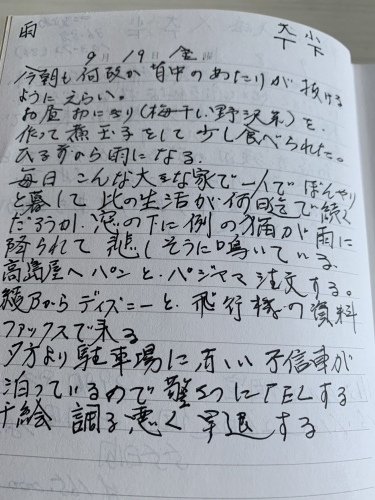 雨
9月19日 金曜
今朝も何故か背中のあたりが抜ける
ようにえらい。
お昼おにぎり(梅干し、野沢菜)を
作って煮玉子をして少し食べられた。
ひるすぎから雨になる。
毎日こんな大きな家で一人でぼんやり
と暮して此の生活が何日迄で続く
だろうか。窓の下に例の猫が雨に
降られて悲しそうに鳴いている。
高島屋へパンとパジャマ注文する。
からディズニーと、飛行機の資料
ファックスで来る
夕方より駐車場に赤い不信車が
泊っているので警らにTELする
千絵 調子悪く早退する